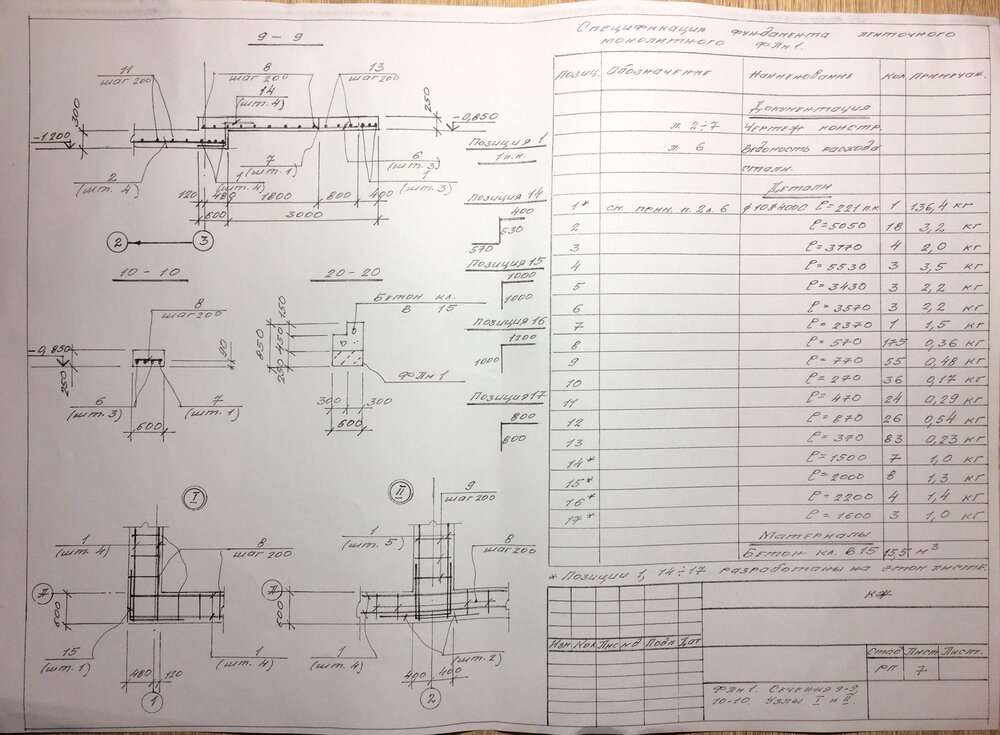 9-9
11
шаг 200
8
шаг 200
14
(шт. 4)
13
шаг 200
300
250
-1.200
-0,850
2
(шт. 4)
7
(шт. 1)
1
(шт. 4)
6
(шт. 3)
1
(шт. 3)
120
480
1800
800
400
600
3000
2
3
Позиция 1
1 п.м.
Позиция 14
400
530
570
Позиция 15
1000
1000
Позиция 16
1200
1000
Позиция 17
800
800
10-10
8
шаг 200
-0,850
250
90
6
(шт. 3)
7
(шт. 1)
600
20-20
Бетон кл.
В 15
850
150
450
250
ФЛн1
300
300
600
I
1
(шт. 4)
8
шаг 200
Д
600
15
(шт. 1)
1
(шт. 4)
480
120
1
II
9
шаг 200
1
(шт. 5)
8
шаг 200
Д
600
1
(шт. 4)
(шт. 2)
400
400
2
Спецификация фундамента ленточного
монолитного ФЛн1.
Позиц. Обозначение Наименование Кол Примечан.
Документация
л. 2÷7 Чертеж констр.
л. 6 Ведомость расхода
стали.
Детали
1* см. прим. п. 2 л. 6 ф10 А400С ℓ=221 п.м. 1 136,4 кг
2 ℓ=5050 18 3,2 кг
3 ℓ=3170 4 2,0 кг
4 ℓ=5530 3 3,5 кг
5 ℓ=3430 3 2,2 кг
6 ℓ=3570 3 2,2 кг
7 ℓ=2370 1 1,5 кг
8 ℓ=570 175 0,36 кг
9 ℓ=770 55 0,48 кг
10 ℓ=270 36 0,17 кг
11 ℓ=470 24 0,29 кг
12 ℓ=870 26 0,54 кг
13 ℓ=370 83 0,23 кг
14* ℓ=1500 7 1,0 кг
15* ℓ=2000 8 1,3 кг
16* ℓ=2200 4 1,4 кг
17* ℓ=1600 3 1,0 кг
Материалы
Бетон кл. В15 15,5 м³
* Позиции 1, 14÷17 разработаны на этом листе.
КЖ
Изм Кол Лист №д Подп Дат
Стад Лист Лист.
РП 7
ФЛн1. Сечения 9-9,
10-10. Узлы I и II.